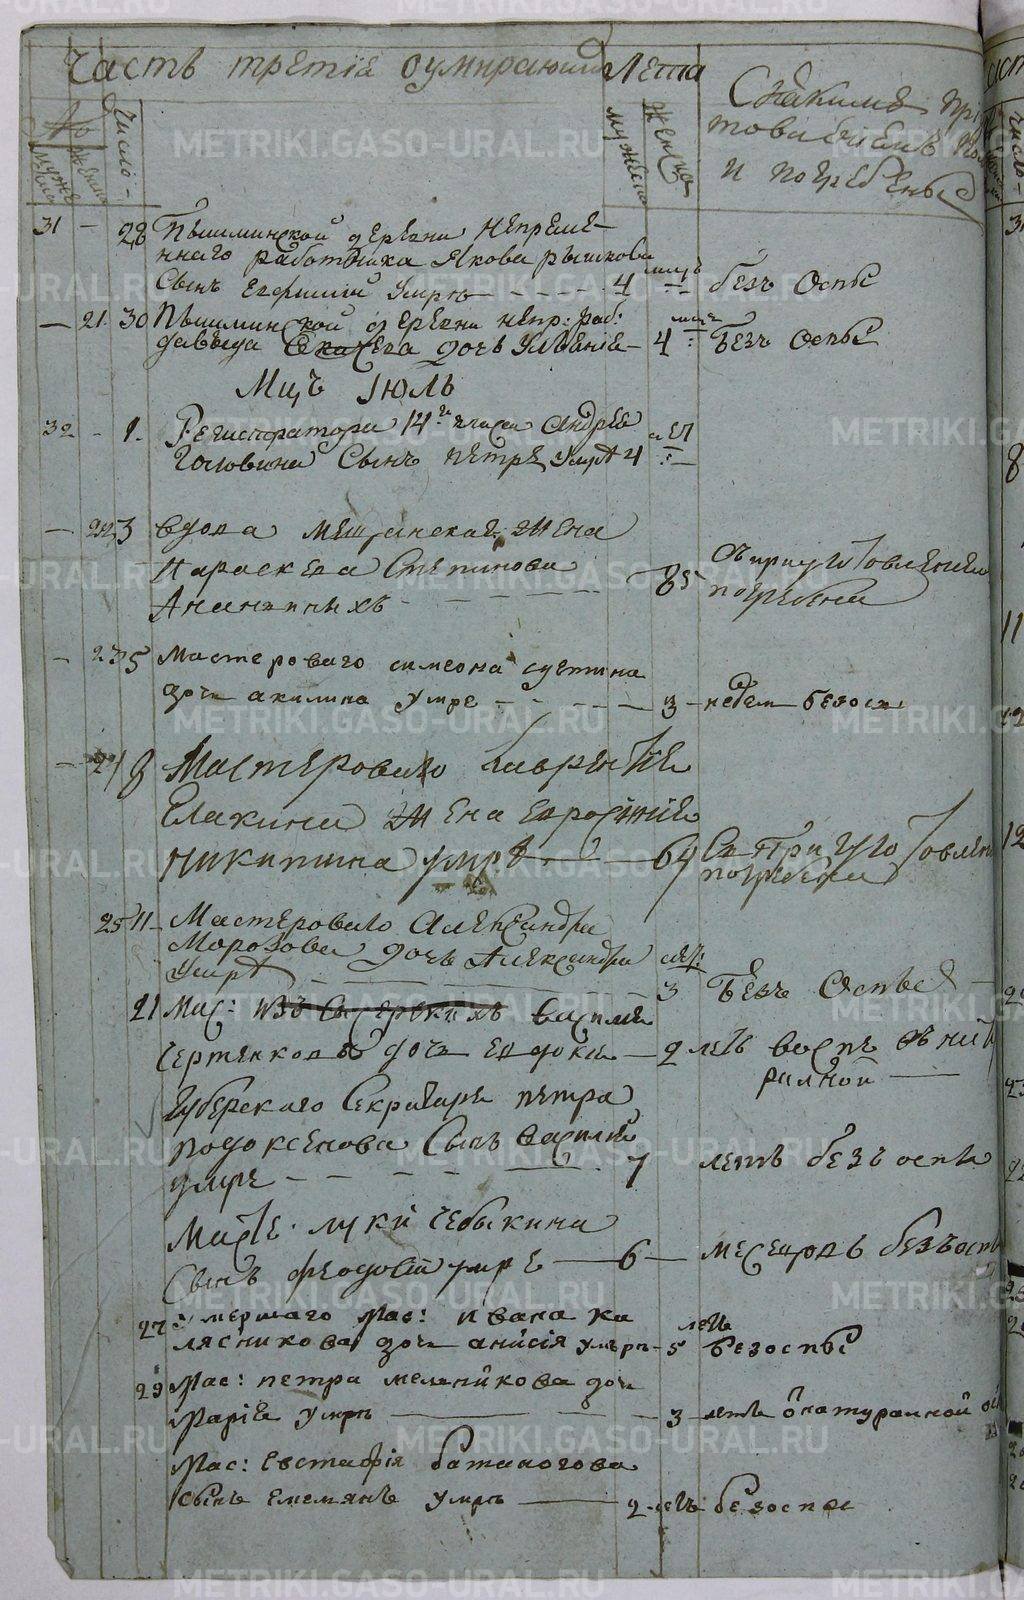 Часть третія оумирающий Лета
Число
мужеска
женска
мужеска
женска
Скакими
и погребены
31 - 28 Пышминской деревни непреме-
ннаго работника Якова рышкова
Сынъ Ефимий умре - - - 4 мца безъ Оспы
- 21 30 Пышминской деревни непр: раб:
давыда дочь Улянія - 4 мца безъ оспы
Мцъ Июль
32 - 1. Регистратора 14го класса Андрея
Головина Сынъ петръ умре 4
- 22 3 вдова мещанская жена
Параскева Степанова
Ананьиныхъ - - - 85
погребена
- 23 5 Мастероваго симеона суетина
дочь акилина умре - - - 3 - недели безос
- 24 8 Мастероваго лаврентие
Елакина жена евросиние
никитина умре - 64
погребена
25 11 - Мастероваго Александра
Морозова дочь Александра
умре - - - 3 лет: безъ Оспы
21 Мас: Василие
чертенкова дочь евдокия - 2 летъ
Губерскаго Секретаря петра
подоксенова Сынъ василий
умре - - - 7 летъ безъ оспы
Масте. луки чебыкина
Сынъ феодосий умре - 6 - месецовъ безъ осп
27 умершаго мас: ивана ка
лясникова дочь анисия умре - 5 летъ безоспы
29 Мас: петра мелникова дочь
Мария умре - 3 летъ
Мас: евстафия баталогова
сынъ емелянъ умре - 2 летъ безоспы
METRIKI.GASO-URAL.RU